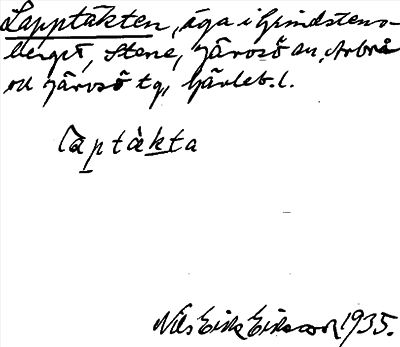 Lapptäkten, äga i Grindstens-
berget, Stene, Järvsö sn, Arbrå
och Järvsö tg, Gävleb. l.
laptäkta
Nils Erik Eriksson 1935.